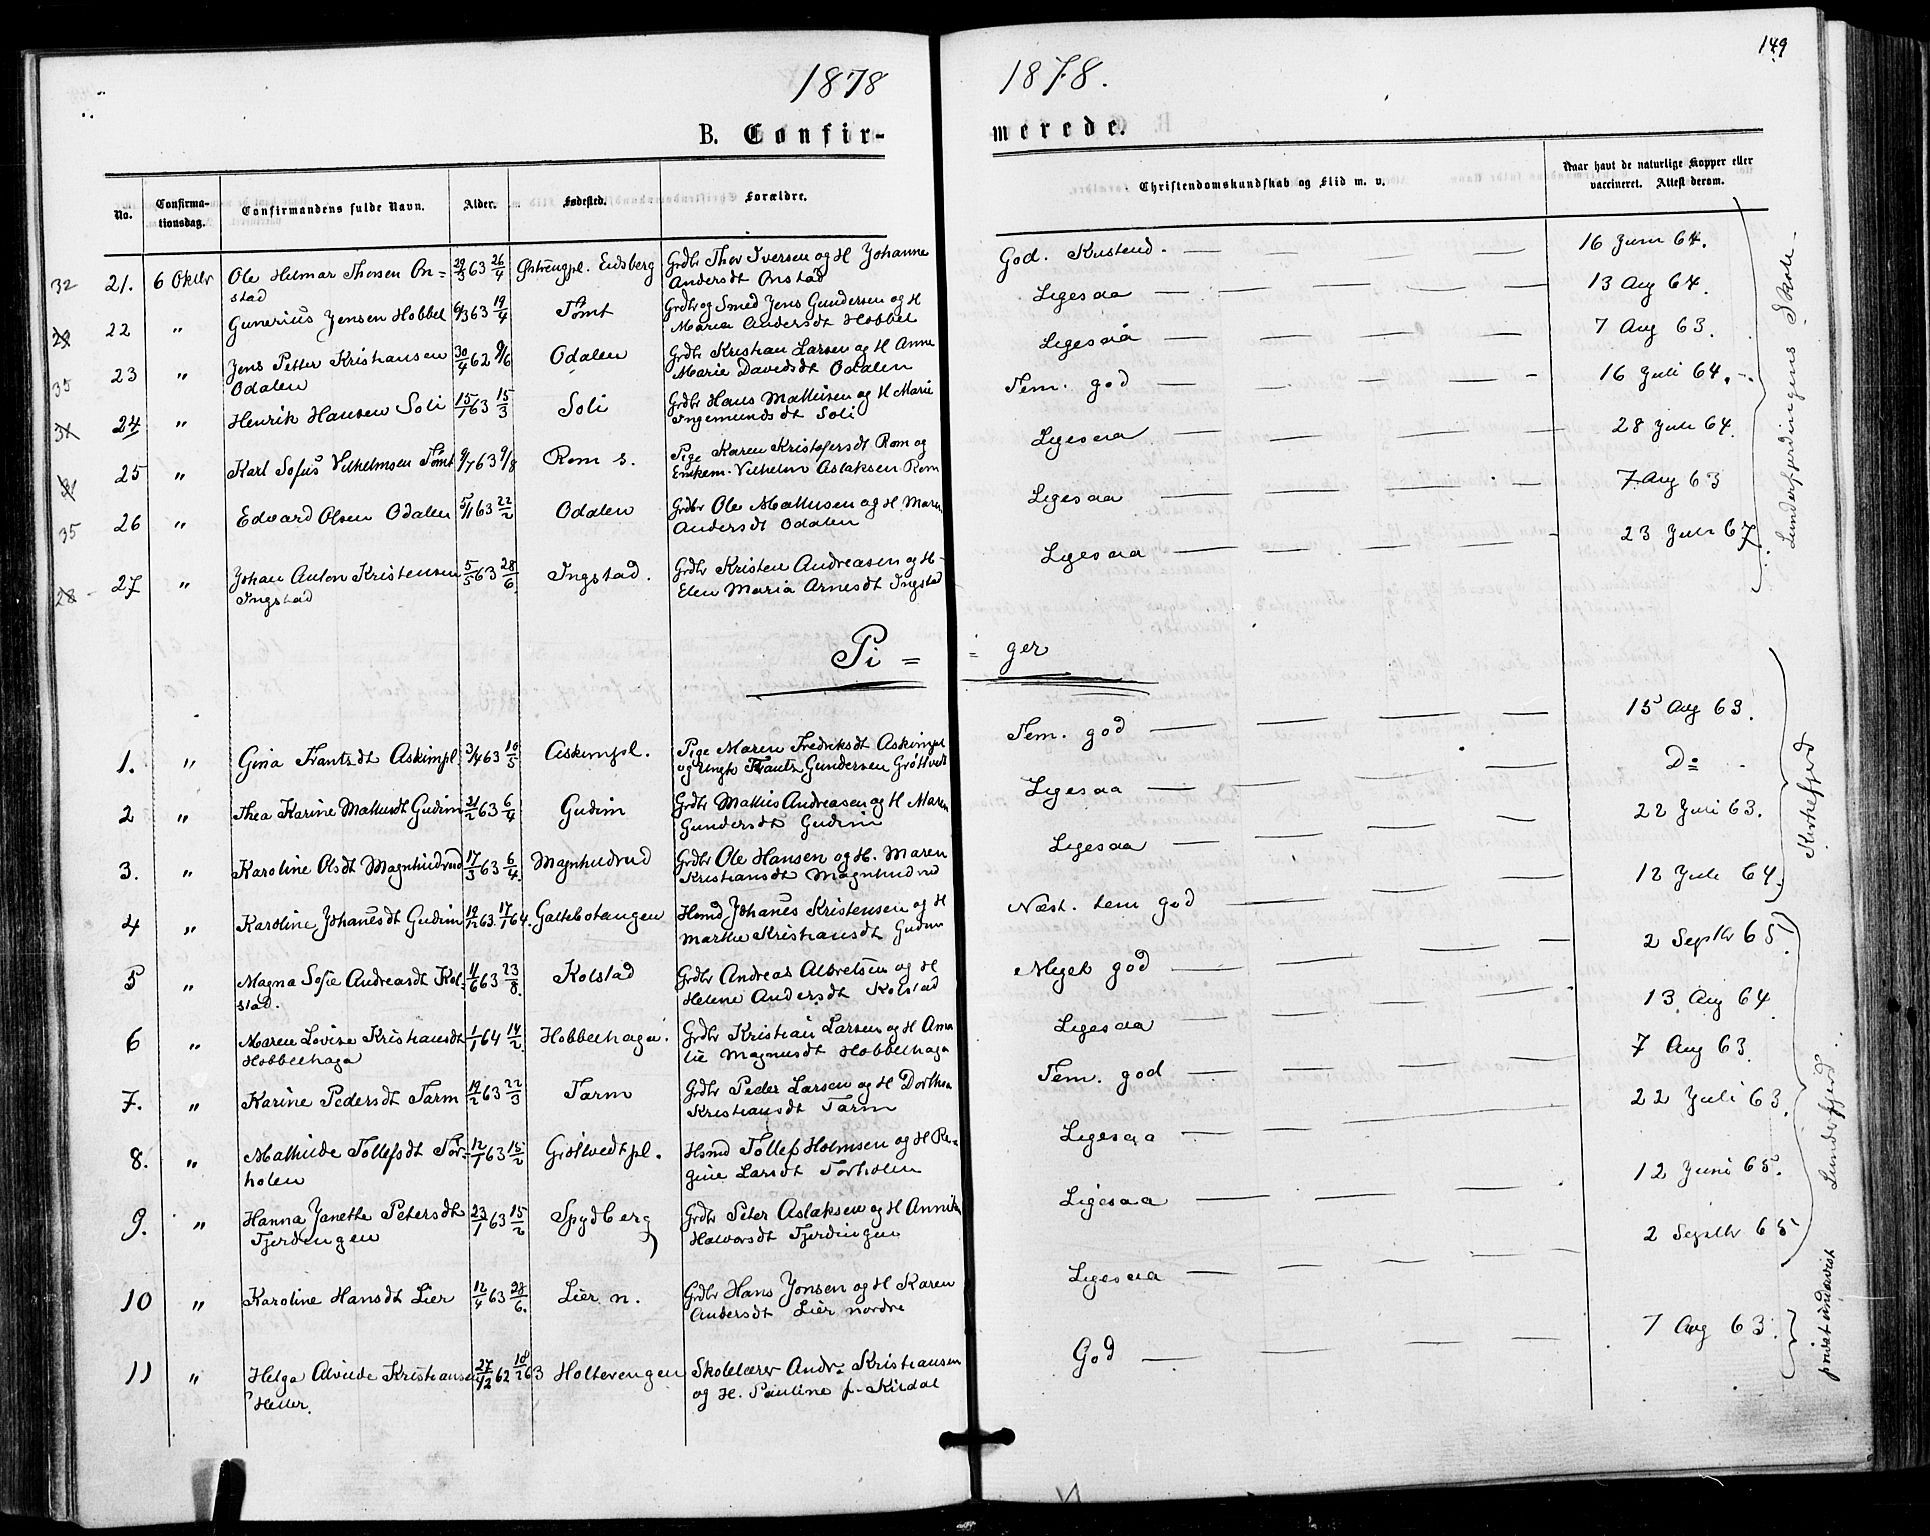 1878
1878.
149
B. Confir-
merede.
No.
Confirma-
tionsdag.
Confirmandens fulde Navn.
Alder.
Fødested.
Forældre.
Christendomskundskab og Flid m. v.
Naar havt de naturlige Kopper eller
vaccineret. Attest derom.
32 21. 6 Oktbr Ole Helmar Thorsen On= 29/3 63 26/4 Østrengpl. Eidsberg Grdbr Thor Iversen og H Johanne God. Kristend. 16 Juni 64.
stad Andersdt Onstad
22 " Gunerius Jensen Hobbel 6/3 63 19/4 Tømt Grdbr og Smed Jens Gundersen og H Ligesaa 13 Aug 64.
Maria Andersdt Hobbel
35 23 " Jens Petter Kristiansen 30/4 62 9/6 Odalen Grdbr Kristian Larsen og H Anne Ligesaa 7 Aug 63.
Odalen Marie Davidsdt Odalen
24 " Henrik Hansen Soli 15/1 63 15/3 Soli Grdbr Hans Mathisen og H Marie Tem. god 16 Juli 64.
Ingemundsdt Soli
25 " Karl Sofus Vilhelmsen Tømt 9/7 63 9/8 Rom s. Pige Karen Kristofersdt Rom og Ligesaa 28 Juli 64.
Enkem. Vilhelm Aslaksen Rom
35 26 " Edvard Olsen Odalen 5/1 63 22/2 Odalen Grdbr Ole Mathisen og H. Maren Ligesaa 7 Aug 63
Andersdt Odalen
28 27 " Johan Anton Kristensen 5/5 63 28/6 Ingstad. Grdbr Kristen Andreasen og H- Ligesaa 23 Juli 67
Ingstad Elen Maria Arnesdt Ingstad
Lunderfjerdingens Skole
Pi = = ger
1. " Gina Frantzdt Askimpl 3/4 63 10/5 Askimpl. Pige Maren Fredriksdt Askimpl Tem. god 15 Aug 63.
og Ungk Frantz Gundersen Grøtvedt
2 " Thea Karine Mathisdt Gudim 21/2 63 6/4 Gudim Grdbr Mathis Andreasen og H Maren Ligesaa Do
Gundersdt Gudim
3. " Karoline Olsdt Magnhildrud 17/3 63 6/4. Magnhildrud Grdbr Ole Hansen og H. Maren Ligesaa 22 Juli 63.
Kristiansdt Magnhildrud
4 " Karoline Johanesdt Gudim 19/12 63 17/1 64. Galtebotangen Hsmd Johanes Kristensen og H Næst. tem god 12 Juli 64.
Marthe Kristiansdt Gudim
5 " Magna Sofie Andreasdt Kol- 11/6 63 23/8. Kolstad Grdbr Andreas Albretsen og H Meget god 2 Septbr 65.
stad. Helene Andersdt Kolstad
6 " Maren Lovise Kristiansdt 1/1 64 14/2. Hobbelhaga. Grdbr Kristian Larsen og H Ama Ligesaa 13 Aug 64
Hobbelhaga lie Magnusdt Hobbelhaga
7. " Karine Pedersdt Tarm 19/2 63 22/3 Tarm Grdbr Peder Larsen og H Dorthea Tem. god 7 Aug 63
Kristiansdt Tarm
8. " Mathilde Tollefsdt Tor- 12/1 63 15/2 Grøtvedtpl. Hsmd Tollef Holmsen og H Re- Ligesaa 22 Juli 63.
holen gine Larsdt Torholen
9. " Hanna Janette Petersdt 23/1 63 15/2 Spydberg Grdbr Peter Aslaksen og H Annika Ligesaa 12 Juni 65.
Fjerdingen Halvorsdt Fjerdingen
10 " Karoline Hansdt Lier 12/4 63 28/6. Lier n. Grdbr Hans Jonsen og H Karen Ligesaa 2 Septbr 65
Andersdt Lier nordre
11 " Helga Alvilde Kristiansen 27/12 62 18/2 63 Holterengen Skolelærer Andr. Kristiansen God 7 Aug 63.
Heller. og H. Pauline f. Kildal
Kirkefjerd
Lunderfjerd.
privat undervist